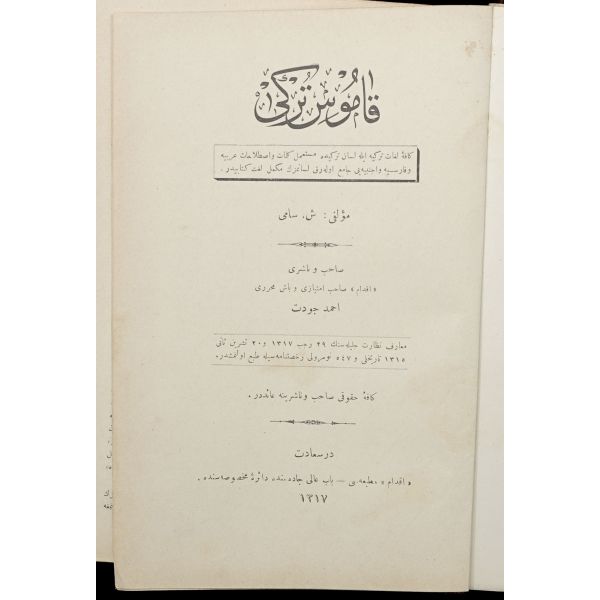 قاموس تركى
كافۀ لغات تركيه ايله لسان تركيده مستعمل كلمات و اصطلاحات عربيه
و فارسيه و اجنبيه‌يى جامع اوله‌رق لسانمزك مكمل لغت كتابيدر.
مؤلفى: ش. سامى
صاحب و ناشرى
«اقدام» صاحب امتيازى و باش محررى
احمد جودت
معارف نظارت جليله‌سنك ٢٩ رجب ١٣١٧ و ٢٠ تشرين ثانى
١٣١٥ تاريخلى و ٥٤٧ نومرولى رخصتنامه سيله طبع اولنمشدر.
كافۀ حقوقى صاحب و ناشرينه عائددر.
درسعادت
«اقدام» مطبعه‌سى — باب عالى جاده‌سنده دائرۀ مخصوصه‌سنده.
١٣١٧